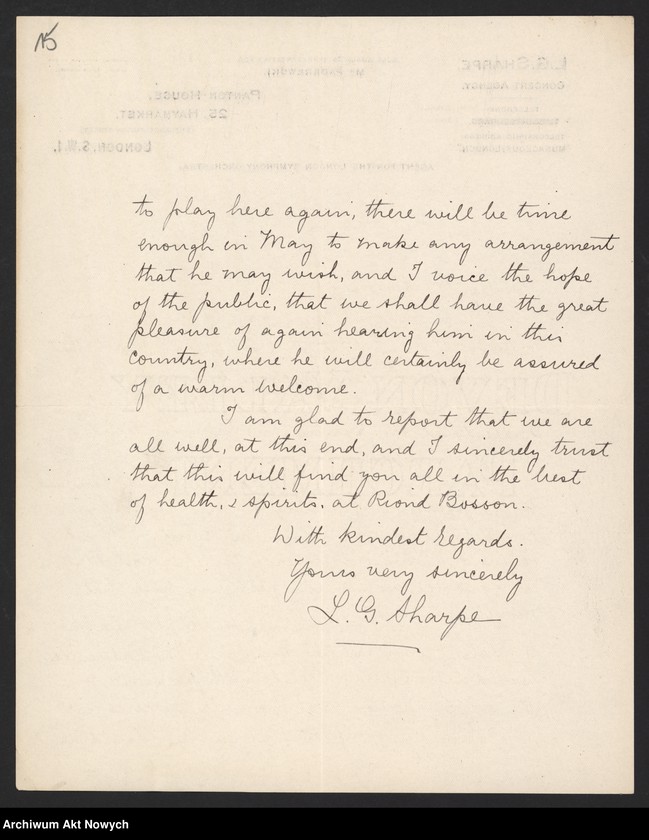 15
to play here again, there will be time
enough in May to make any arrangement
that he may wish, and I voice the hope
of the public, that we shall have the great
pleasure of again hearing him in this
country, where he will certainly be assured
of a warm welcome.
I am glad to report that we are
all well, at this end, and I sincerely trust
that this will find you all in the best
of health, & spirits, at Riond Bosson.
With kindest regards.
Yours very sincerely
L. G. Sharpe
Archiwum Akt Nowych